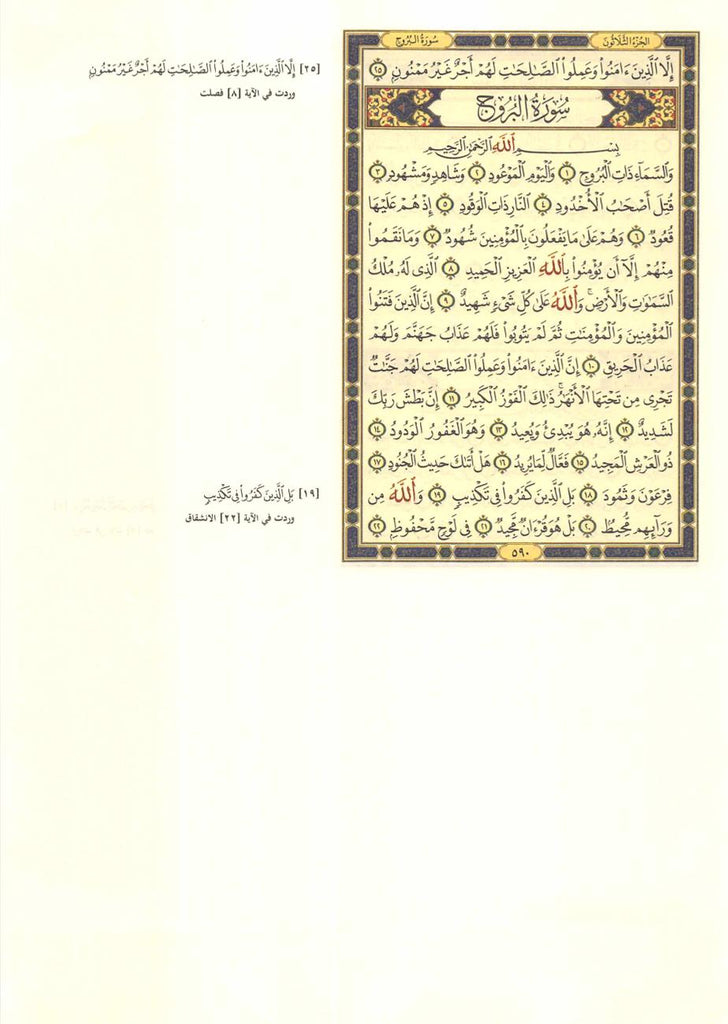 الجزء الثلاثون
سورة البروج
إِلَّا ٱلَّذِينَ ءَامَنُوا۟ وَعَمِلُوا۟ ٱلصَّـٰلِحَـٰتِ لَهُمْ أَجْرٌ غَيْرُ مَمْنُونٍ ٢٥
سُورَةُ البُرُوجِ
بِسْمِ ٱللَّهِ ٱلرَّحْمَـٰنِ ٱلرَّحِيمِ
وَٱلسَّمَآءِ ذَاتِ ٱلْبُرُوجِ ١ وَٱلْيَوْمِ ٱلْمَوْعُودِ ٢ وَشَاهِدٍ وَمَشْهُودٍ ٣
قُتِلَ أَصْحَـٰبُ ٱلْأُخْدُودِ ٤ ٱلنَّارِ ذَاتِ ٱلْوَقُودِ ٥ إِذْ هُمْ عَلَيْهَا
قُعُودٌ ٦ وَهُمْ عَلَىٰ مَا يَفْعَلُونَ بِٱلْمُؤْمِنِينَ شُهُودٌ ٧ وَمَا نَقَمُوا۟
مِنْهُمْ إِلَّآ أَن يُؤْمِنُوا۟ بِٱللَّهِ ٱلْعَزِيزِ ٱلْحَمِيدِ ٨ ٱلَّذِى لَهُۥ مُلْكُ
ٱلسَّمَـٰوَٰتِ وَٱلْأَرْضِ ۚ وَٱللَّهُ عَلَىٰ كُلِّ شَىْءٍ شَهِيدٌ ٩ إِنَّ ٱلَّذِينَ فَتَنُوا۟
ٱلْمُؤْمِنِينَ وَٱلْمُؤْمِنَـٰتِ ثُمَّ لَمْ يَتُوبُوا۟ فَلَهُمْ عَذَابُ جَهَنَّمَ وَلَهُمْ
عَذَابُ ٱلْحَرِيقِ ١٠ إِنَّ ٱلَّذِينَ ءَامَنُوا۟ وَعَمِلُوا۟ ٱلصَّـٰلِحَـٰتِ لَهُمْ جَنَّـٰتٌ
تَجْرِى مِن تَحْتِهَا ٱلْأَنْهَـٰرُ ۚ ذَٰلِكَ ٱلْفَوْزُ ٱلْكَبِيرُ ١١ إِنَّ بَطْشَ رَبِّكَ
لَشَدِيدٌ ١٢ إِنَّهُۥ هُوَ يُبْدِئُ وَيُعِيدُ ١٣ وَهُوَ ٱلْغَفُورُ ٱلْوَدُودُ ١٤
ذُو ٱلْعَرْشِ ٱلْمَجِيدُ ١٥ فَعَّالٌ لِّمَا يُرِيدُ ١٦ هَلْ أَتَىٰكَ حَدِيثُ ٱلْجُنُودِ ١٧
فِرْعَوْنَ وَثَمُودَ ١٨ بَلِ ٱلَّذِينَ كَفَرُوا۟ فِى تَكْذِيبٍ ١٩ وَٱللَّهُ مِن
وَرَآئِهِم مُّحِيطٌۢ ٢٠ بَلْ هُوَ قُرْءَانٌ مَّجِيدٌ ٢١ فِى لَوْحٍ مَّحْفُوظٍۭ ٢٢
٥٩٠
[٢٥] إِلَّا ٱلَّذِينَ ءَامَنُوا۟ وَعَمِلُوا۟ ٱلصَّـٰلِحَـٰتِ لَهُمْ أَجْرٌ غَيْرُ مَمْنُونٍ
وردت في الآية [٨] فصلت
[١٩] بَلِ ٱلَّذِينَ كَفَرُوا۟ فِى تَكْذِيبٍ
وردت في الآية [٢٢] الانشقاق